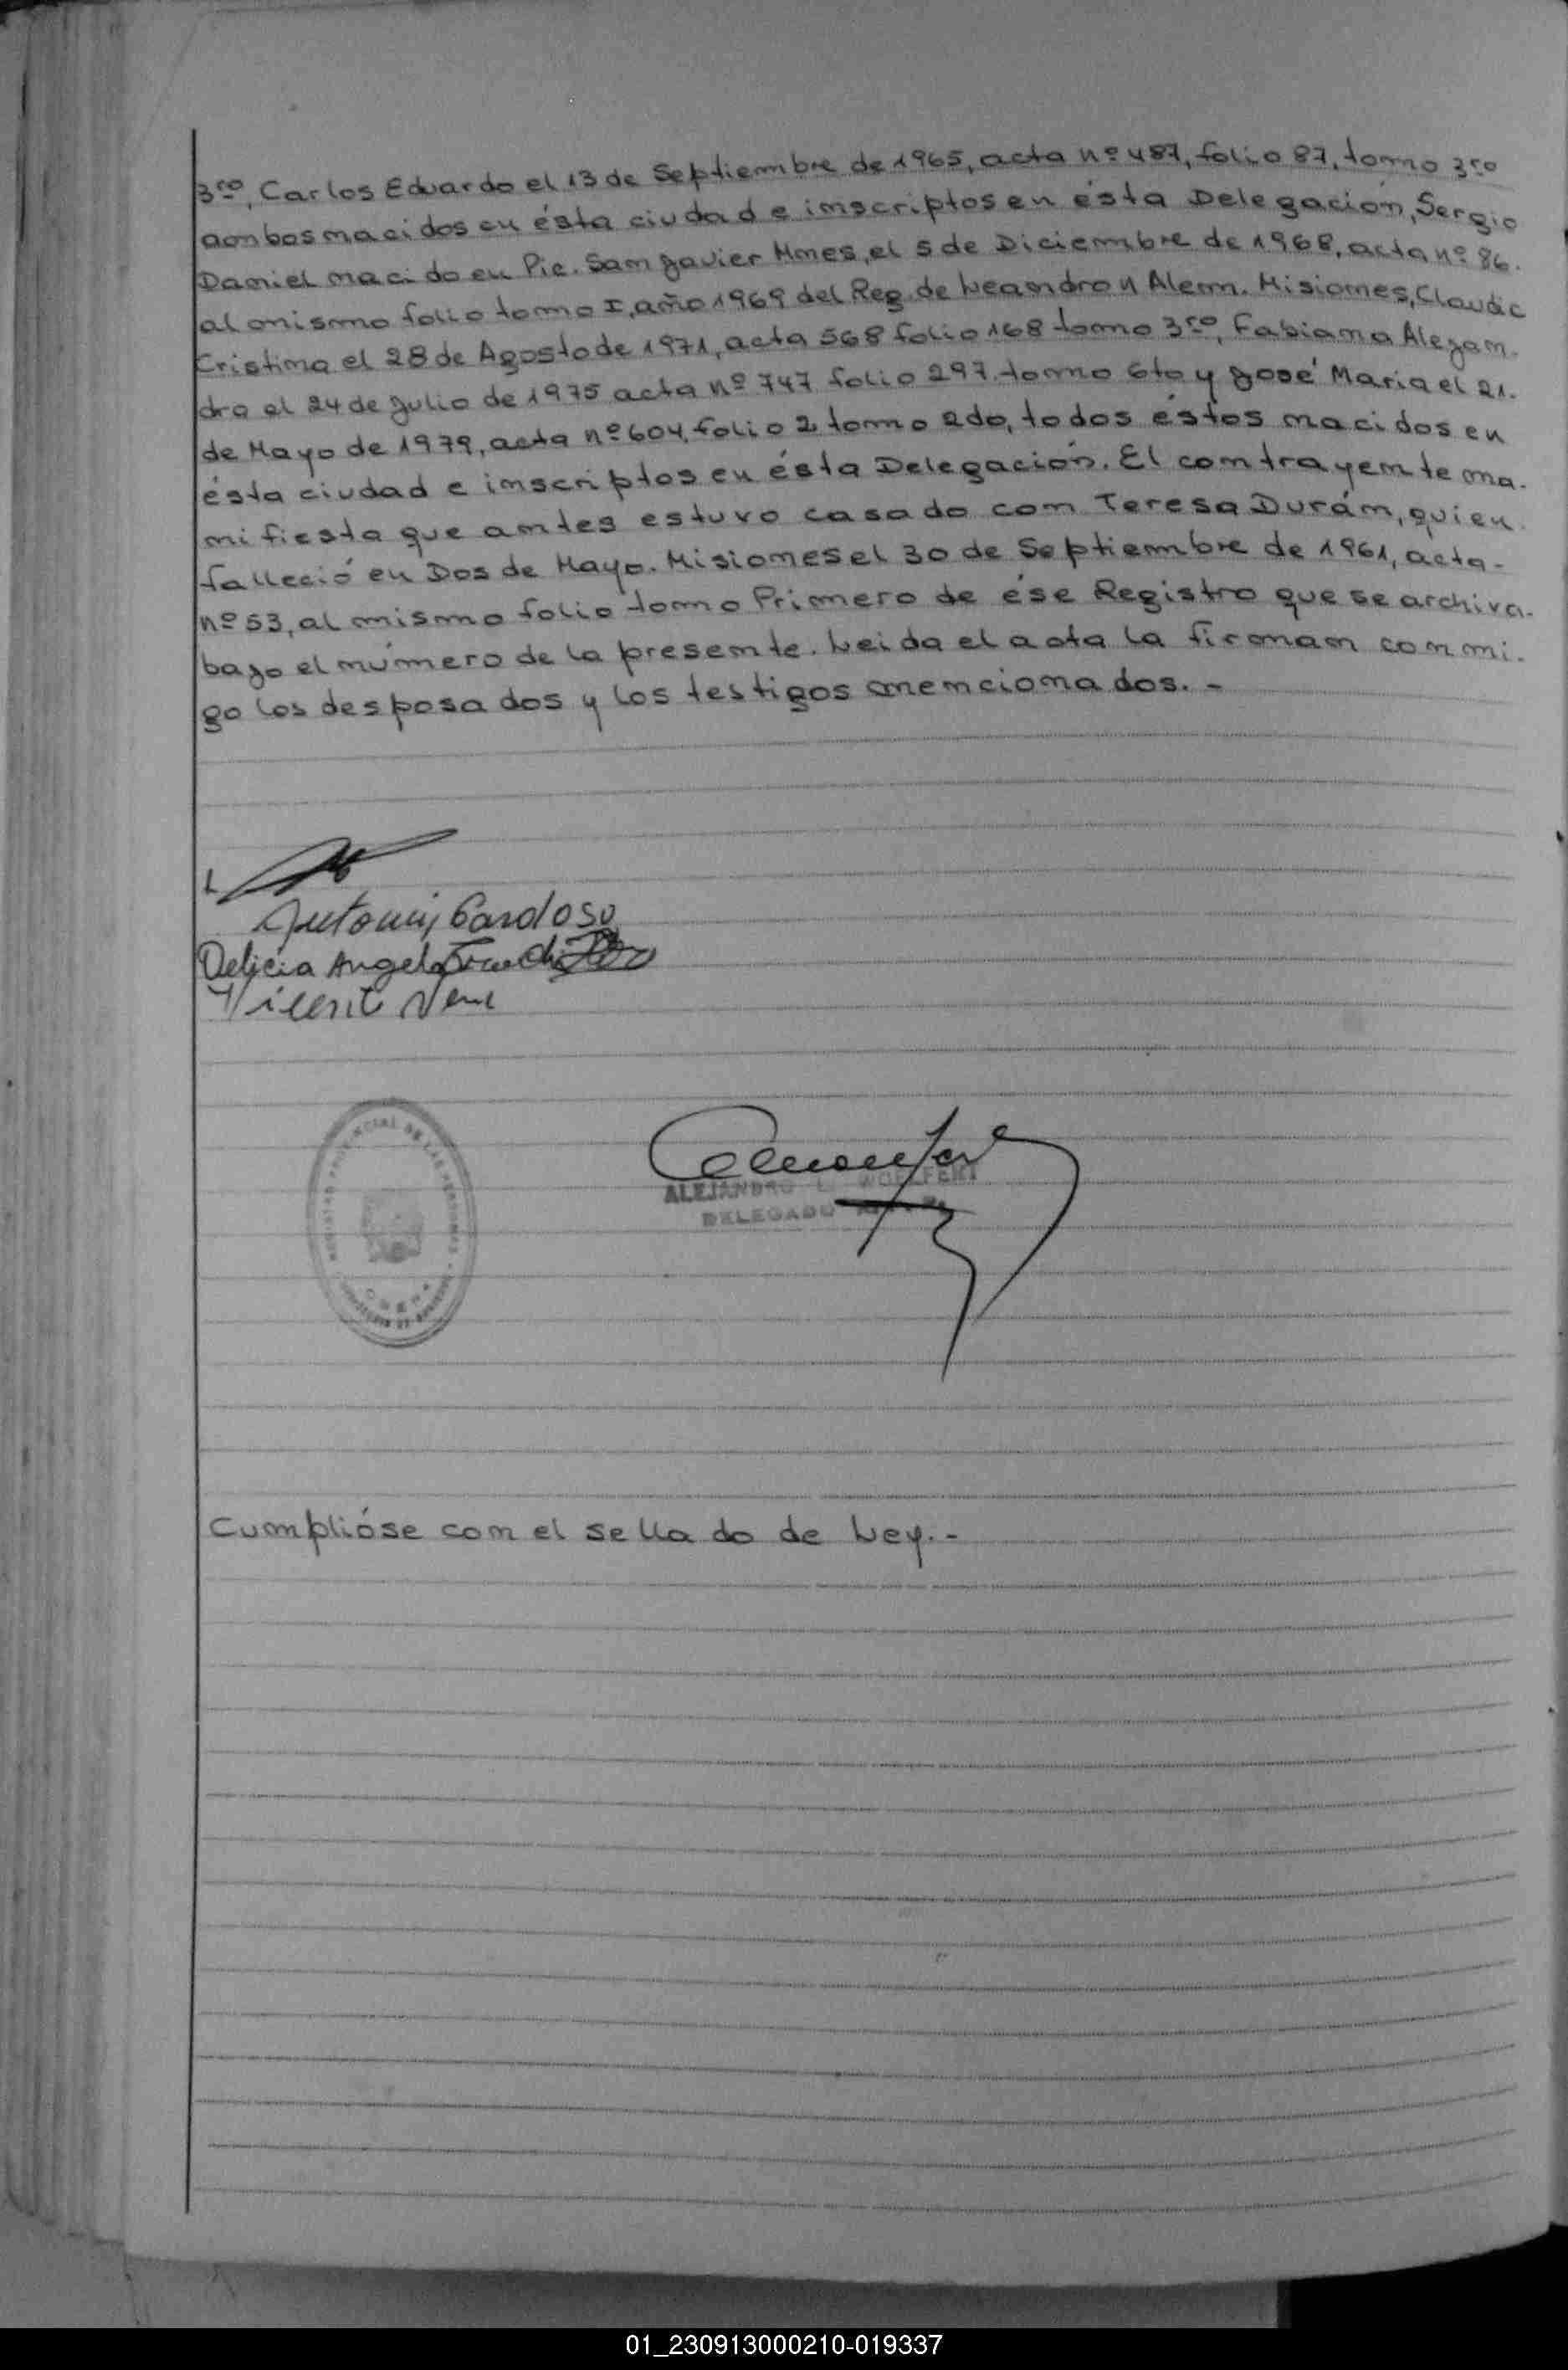 3ro, Carlos Eduardo el 13 de Septiembre de 1965, acta nº 487, folio 87, tomo 3ro
ambos nacidos en ésta ciudad e inscriptos en ésta Delegación, Sergio
Daniel nacido en Pic. San Javier Mnes, el 5 de Diciembre de 1968, acta nº 86.
al mismo folio tomo I, año 1969 del Reg. de Leandro N Alem. Misiones, Claudia
Cristina el 28 de Agosto de 1971, acta 568 folio 168 tomo 3ro, Fabiana Alejan-
dra el 24 de Julio de 1975 acta nº 747 folio 297. tomo 6to y José María el 21.
de Mayo de 1979, acta nº 604, folio 2 tomo 2do, todos éstos nacidos en
ésta ciudad e inscriptos en ésta Delegación. El contrayente ma-
nifiesta que antes estuvo casado con Teresa Durán, quien
falleció en Dos de Mayo. Misiones el 30 de Septiembre de 1961, acta-
nº 53, al mismo folio tomo Primero de ése Registro que se archiva-
bajo el número de la presente. Leida el acta la firman conmi-
go los desposados y los testigos mencionados.-
Cardoso
Delicia Angela
REGISTRO PROVINCIAL DE LAS PERSONAS
OBERA
ALEJANDRO L. WOLLFERT
DELEGADO
Cumplióse con el sellado de Ley.-
01_230913000210-019337